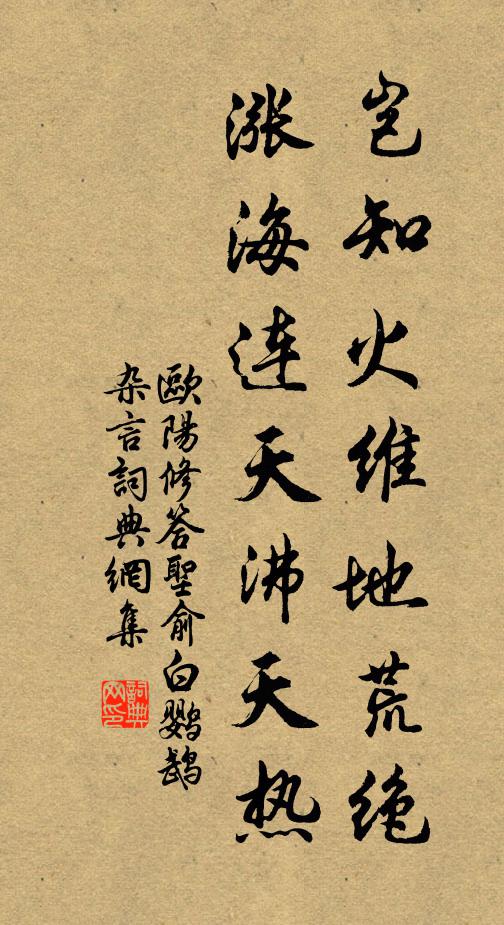 岂知火维地荒绝
漲海连天沸天热
歐陽修答聖俞白鹦鹉
杂言詞典網集
詞典网印